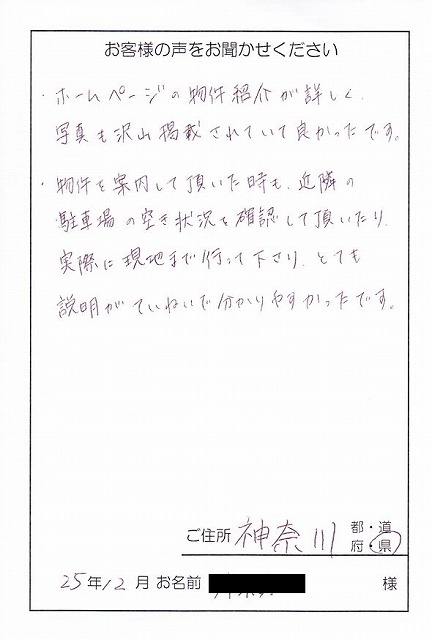 お客様の声をお聞かせください
・ホームページの物件紹介が詳しく、
写真も沢山掲載されていて良かったです。
・物件を案内して頂いた時も、近隣の
駐車場の空き状況を確認して頂いたり、
実際に現地まで行って下さり、とても
説明がていねいで分かりやすかったです。
ご住所 神奈川 都・道
府・県
25年12月 お名前 様